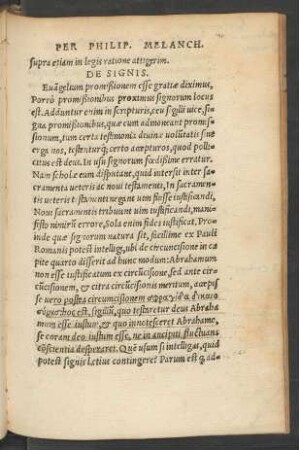 PER PHILIP. MELANCH.
supra etiam in legis ratione attigerim.
DE SIGNIS.
Euãgelium promißionem esse gratiæ diximus,
Porrò promißionibus proximus signorum locus
est. Adduntur enim in scripturis, ceu sigilli uice, si-
gna promißionibus, quæ cum admoneant promis-
sionum, tum certa testimonia diuinæ uolũtatis sint
erga nos, testentur'q; certo accepturos, quod polli-
citus est deus. In usu signorum fœdißime erratur.
Nam scholæ cum disputant, quid intersit inter sa-
cramenta ueteris ac noui testamenti, In sacramen-
tis ueteris testamenti negant uim fuisse iustificandi,
Noui sacramentis tribuunt uim iustificandi, mani-
festo nimirũ errore, Sola enim fides iustificat. Pro-
inde quæ signorum natura sit, facillime ex Pauli
Romanis potest intelligi, ubi de circumcisione in ca-
pite quarto disserit ad hunc modum: Abrahamum
non esse iustificatum ex circũcisione, sed ante cir-
cũcisionem, & citra circũcisionis meritum, accepis-
se uero postea circumcisionem σφραγῖδα δικαιο
σύνης hoc est, sigillũ, quo testaretur deus Abraha-
mum esse iustum, & quo innotesceret Abrahamo,
se coram deo iustum esse, ne in ancipiti fluctuans
cõscientia desperaret. Quẽ usum si intelligas, quid
potest signis lætius contingere? Parum est q, ad-